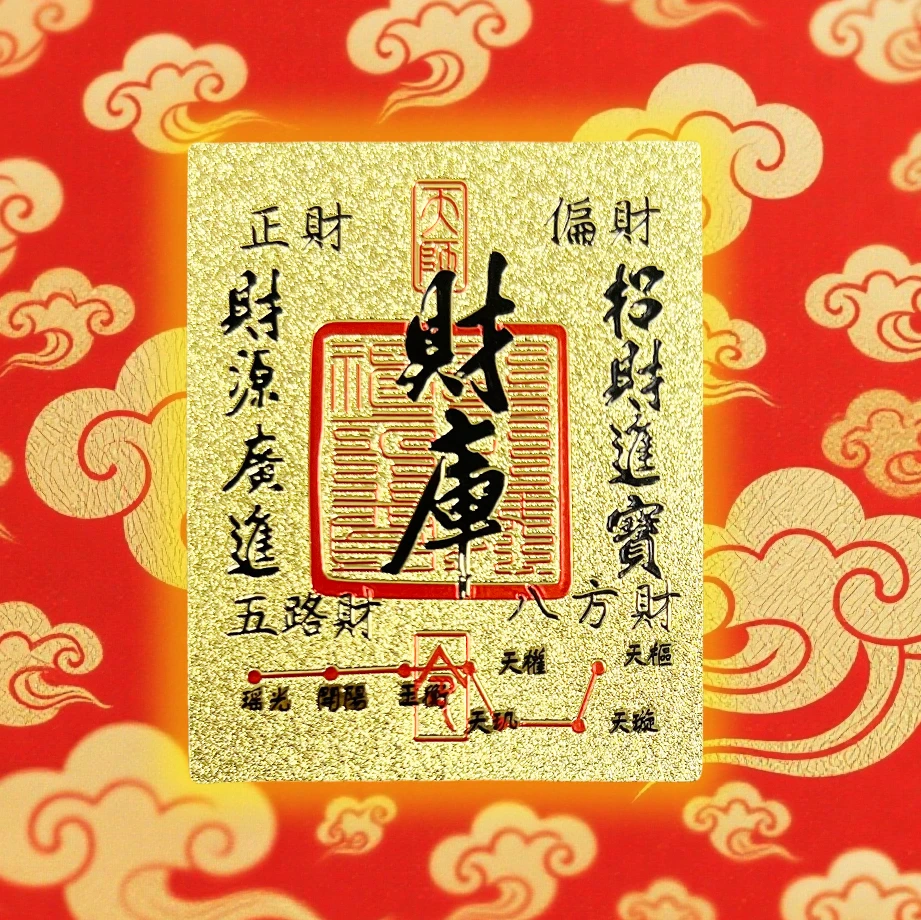 天師
偏財
正財
招財進寶
財庫
財源廣進
八方財
五路財
天樞
天權
瑤光
開陽
玉衡
天璇
天玑
令